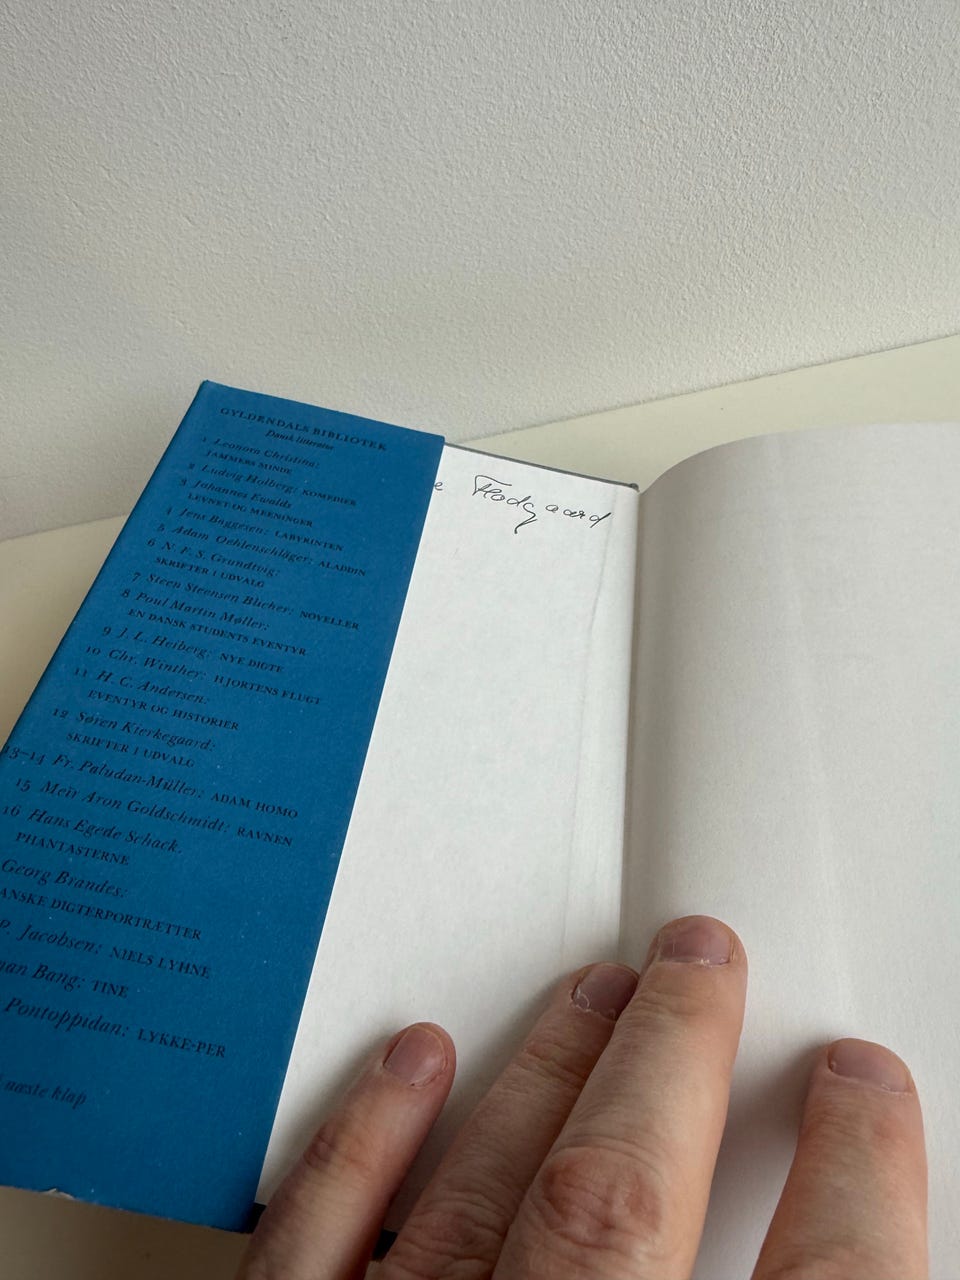 GYLDENDALS BIBLIOTEK
Dansk litteratur
1 Leonora Christina:
JAMMERS MINDE
2 Ludvig Holberg: KOMEDIER
3 Johannes Ewalds
LEVNET OG MEENINGER
4 Jens Baggesen: LABYRINTEN
5 Adam Oehlenschläger: ALADDIN
6 N. F. S. Grundtvig:
SKRIFTER I UDVALG
7 Steen Steensen Blicher: NOVELLER
8 Poul Martin Møller:
EN DANSK STUDENTS EVENTYR
9 J. L. Heiberg: NYE DIGTE
10 Chr. Winther: HJORTENS FLUGT
11 H. C. Andersen:
EVENTYR OG HISTORIER
12 Søren Kierkegaard:
SKRIFTER I UDVALG
13-14 Fr. Paludan-Müller: ADAM HOMO
15 Meïr Aron Goldschmidt: RAVNEN
16 Hans Egede Schack:
PHANTASTERNE
Georg Brandes:
ANSKE DIGTERPORTRÆTTER
P. Jacobsen: NIELS LYHNE
man Bang: TINE
Pontoppidan: LYKKE-PER
næste klap
e Flodgaard